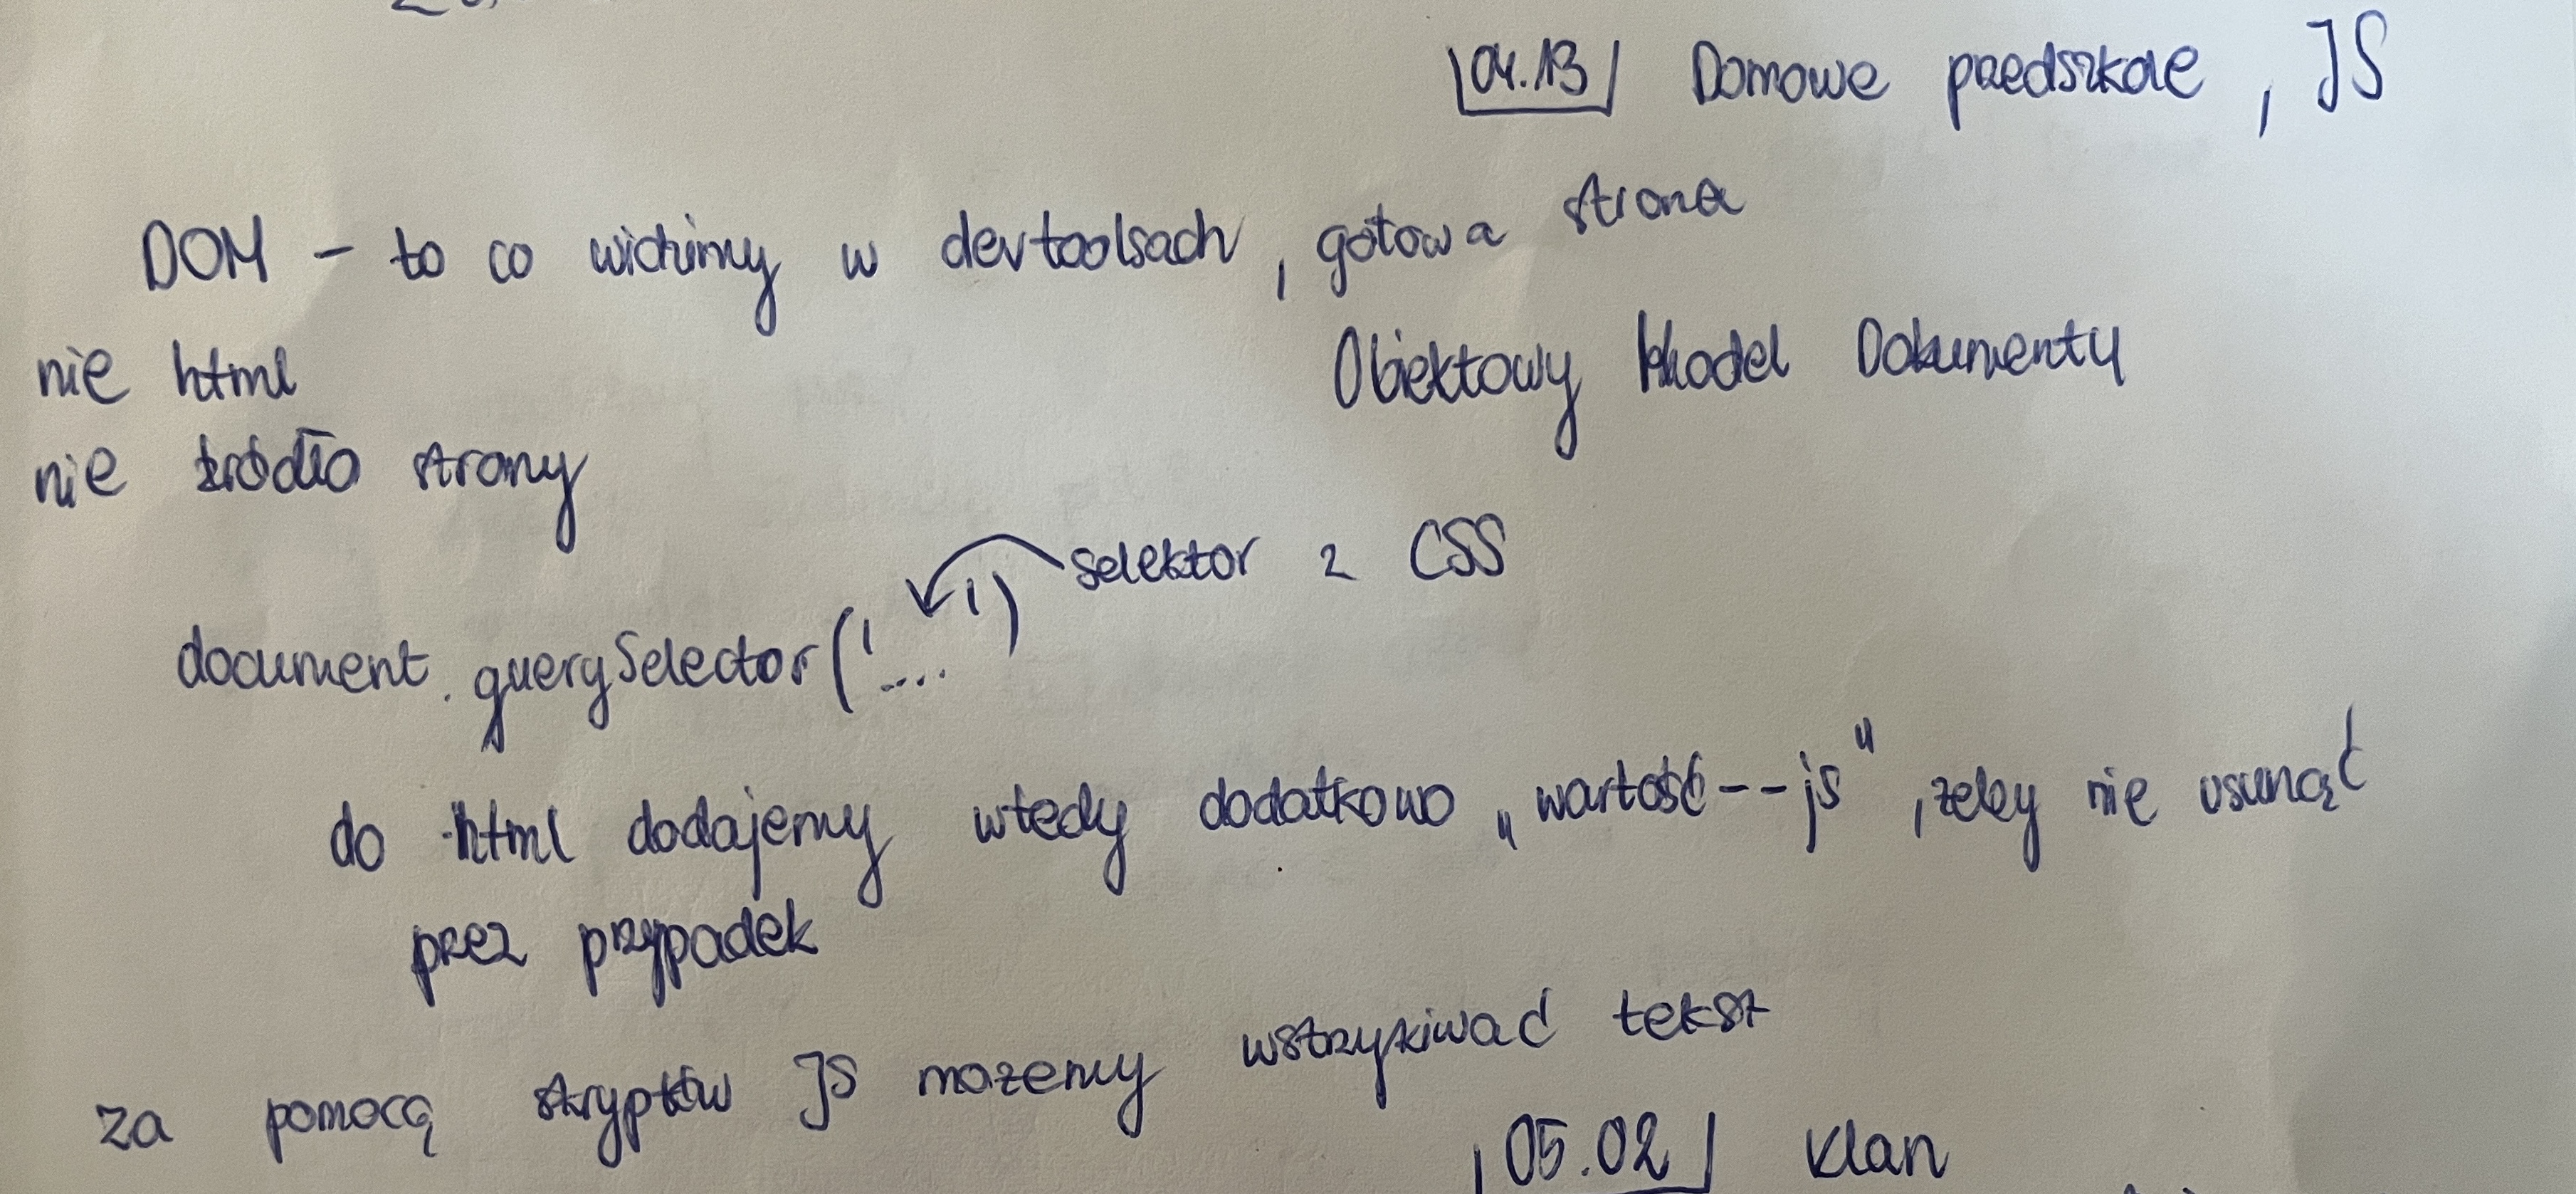 04.13 Domowe przedszkole, JS
DOM - to co widzimy w devtoolsach, gotowa strona
nie html
Obiektowy Model Dokumentu
nie źródło strony
selektor z CSS
document.querySelector('....')
do html dodajemy wtedy dodatkowo „wartość--js", żeby nie usunąć
przez przypadek
za pomocą skryptów JS możemy wstrzykiwać tekst
05.02 Klan